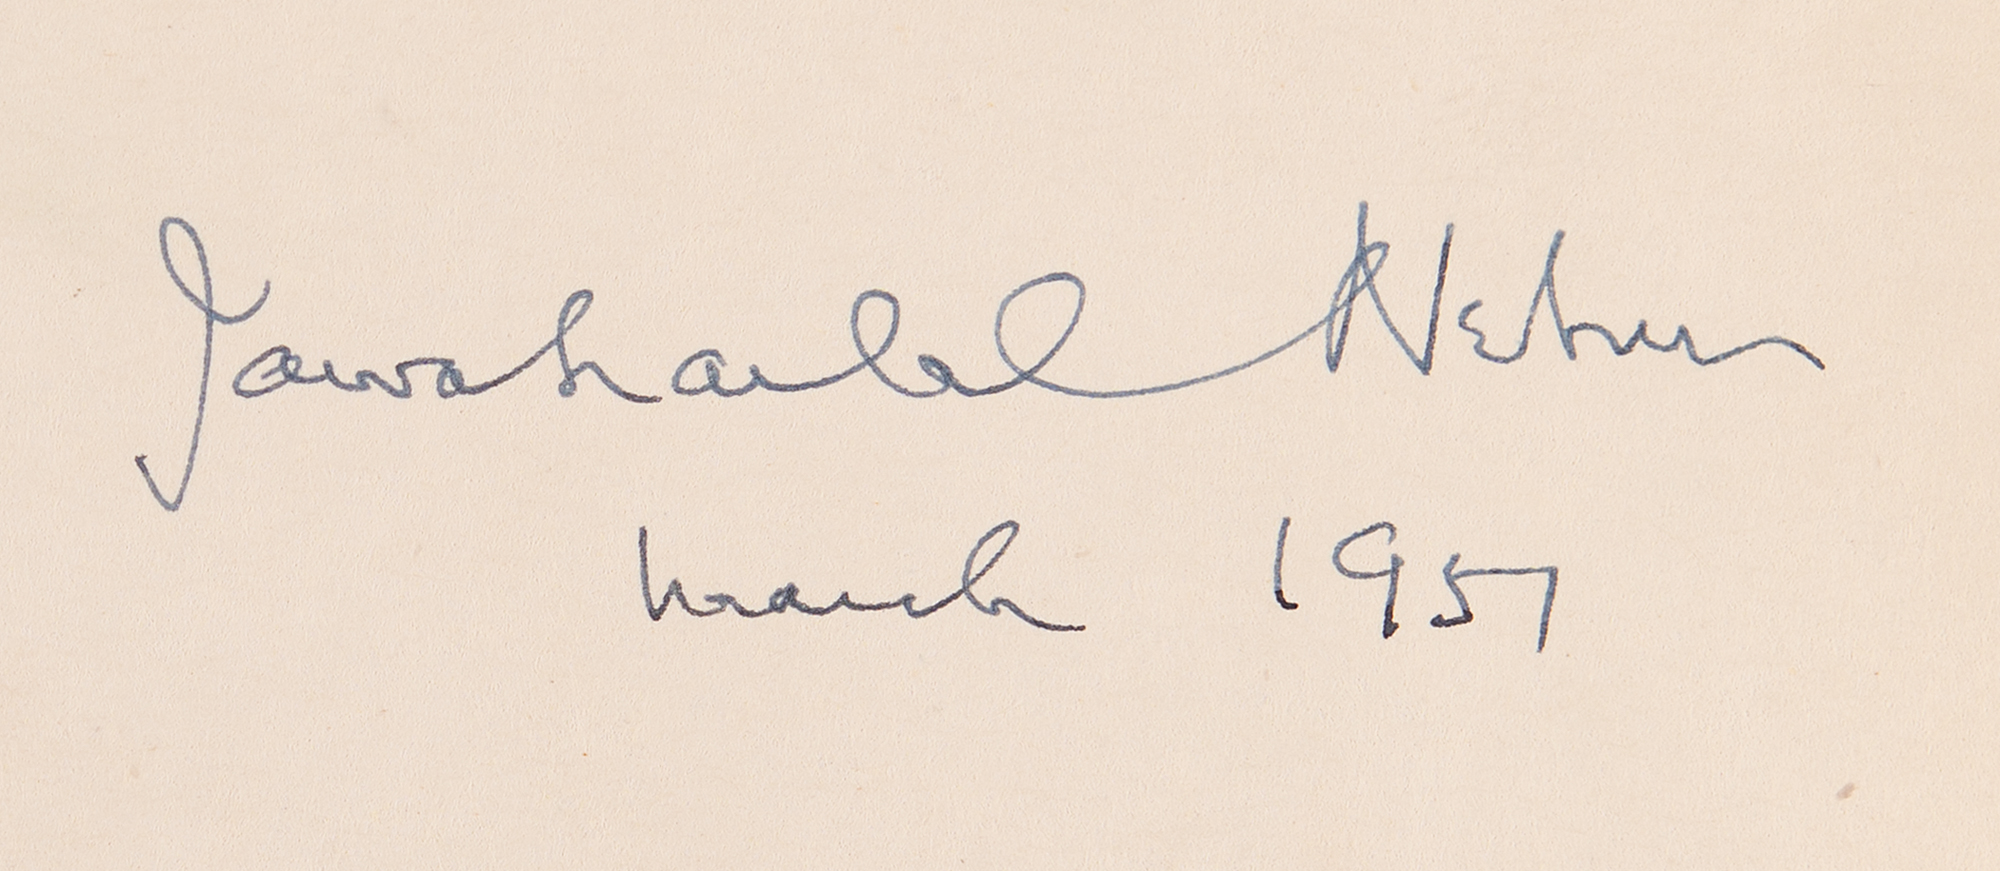 Jawaharlal Nehru
March 1957